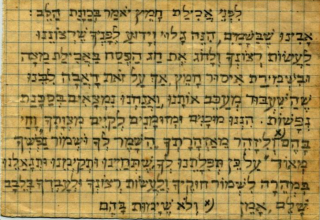 לפני אכילת חמץ יאמר בכונת הלב:
אבינו שבשמים, הנה גלוי וידוע לפניך שרצוננו
לעשות רצונך ולחוג את חג הפסח באכילת מצה
ובשמירת איסור חמץ, אך על זאת דאבה לבנו
שהשעבוד מעכב אותנו, ואנחנו נמצאים בסכנת
נפשות. הננו מוכנים ומזומנים לקיים מצותך „וחי
בהם" ולזהר מאזהרתך „השמר לך ושמור נפשך
מאוד" על כן תפלתנו לך שתחיינו ותקימנו ותגאלנו
במהרה לשמור חוקיך ולעשות רצונך ולעבדך בלבב
שלם, אמן x) ולא שימות בהם